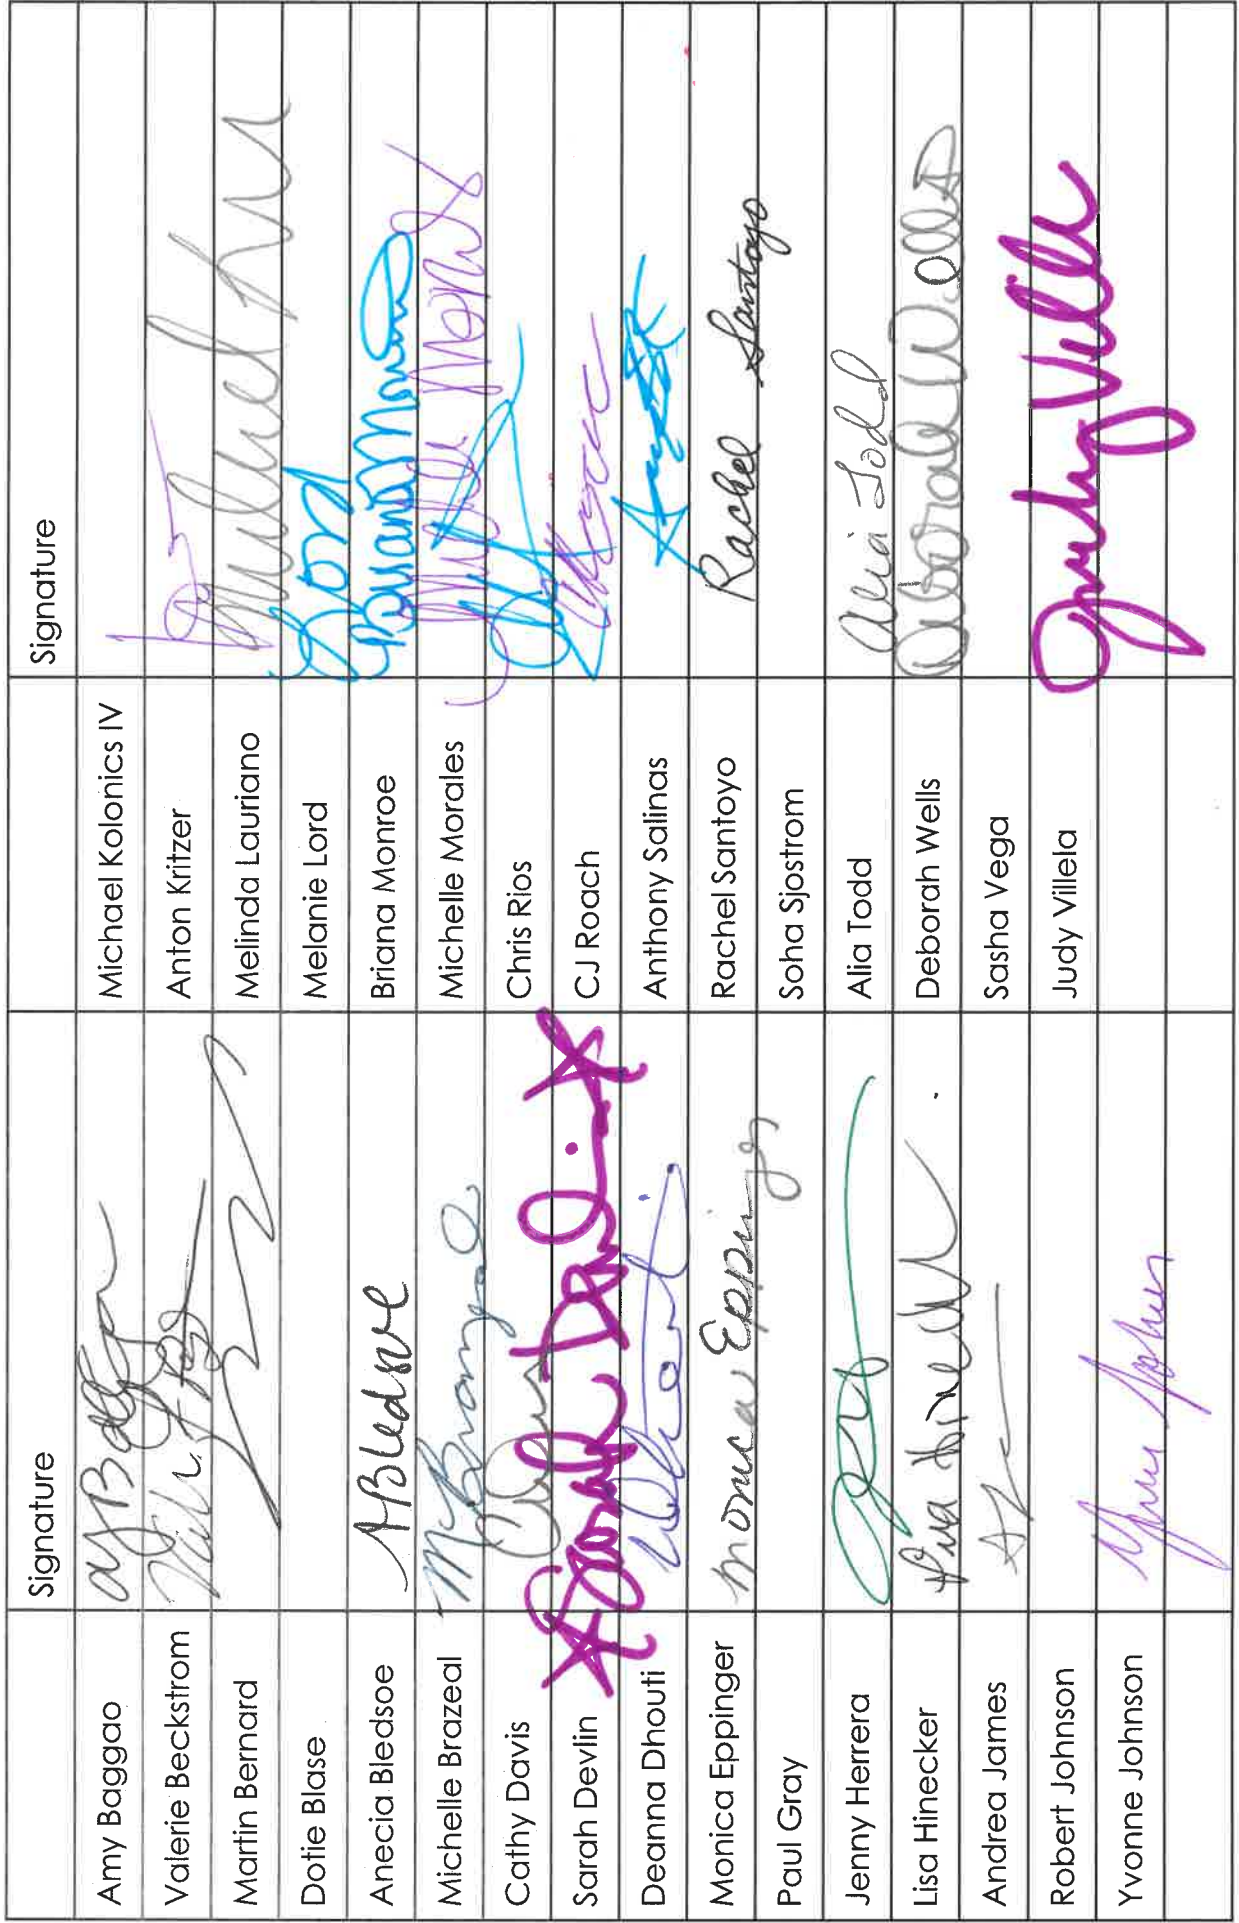 Signature Signature
Amy Baggao Michael Kolonics IV
Valerie Beckstrom Anton Kritzer
Martin Bernard Melinda Lauriano
Dotie Blase Melanie Lord Lord
Anecia Bledsoe ABledsoe Briana Monroe Briana Monroe
Michelle Brazeal MBrazeal Michelle Morales
Cathy Davis Chris Rios
Sarah Devlin Sarah Devlin CJ Roach
Deanna Dhouti Anthony Salinas
Monica Eppinger Monica Eppinger Rachel Santoyo Rachel Santoyo
Paul Gray Soha Sjostrom
Jenny Herrera Alia Todd Alia Todd
Lisa Hinecker Deborah Wells Deborah Wells
Andrea James Sasha Vega
Robert Johnson Judy Villela Judy Villela
Yvonne Johnson